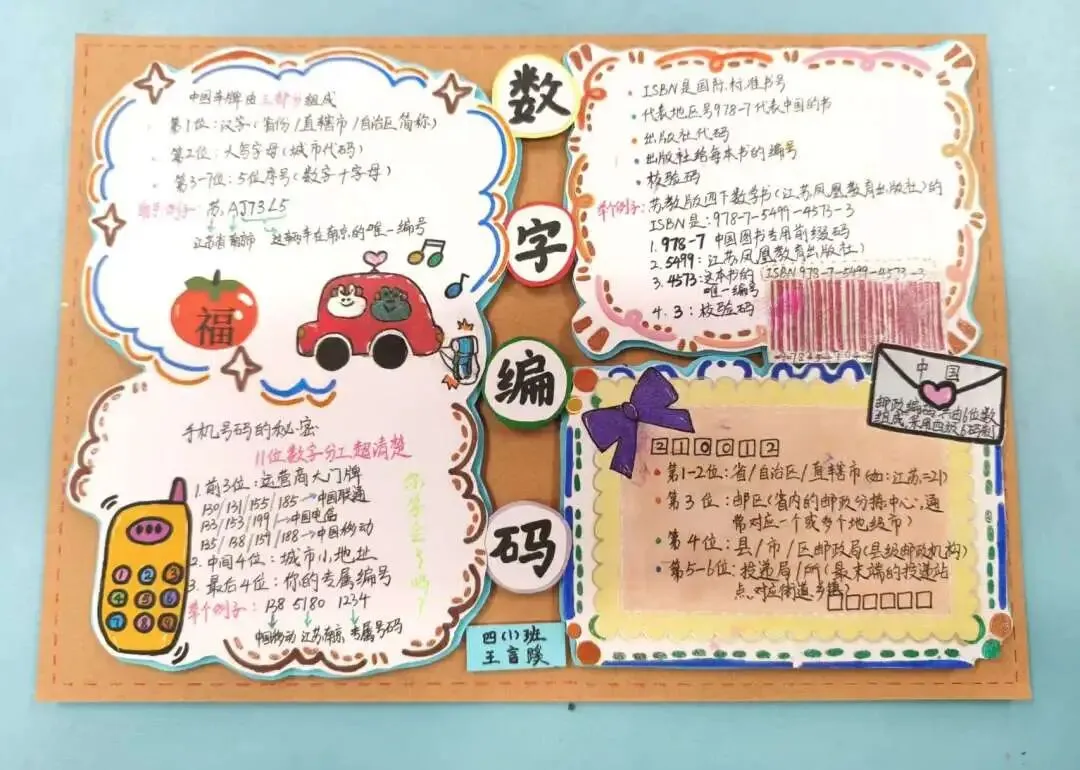 数
字
编
码
中国车牌由三部分组成
第1位:汉字(省份/直辖市/自治区简称)
第2位:大写字母(城市代码)
第3-7位:5位序号(数字+字母)
苏AJ73L5
江苏省南京市 这辆车在南京的唯一编号
福
手机号码的秘密
11位数字分工超清楚
1.前3位:运营商大门牌
130/131/155/185→中国联通
133/153/199/→中国电信
135/138/159/188→中国移动
2.中间4位:城市小地址
3.最后4位:你的专属编号
举个例子:138 5180 1234
中国移动 江苏南京 专属号码
你学会了吗?
1 2 3
4 5 6
7 8 9
ISBN是国际标准书号
代表地区号978-7代表中国的书
出版社代码
出版社给每本书的编号
校验码
举个例子:苏教版四下数学书(江苏凤凰教育出版社)的
ISBN是:978-7-5499-4573-3
1.978-7 中国图书专用前缀码
2.5499:江苏凤凰教育出版社)
3.4573:这本书的
唯一编号
4.3:校验码
ISBN 978-7-5499-4573-3
中国
邮政编码共由6位数
组成,采用四级
210012
第1-2位:省/自治区/直辖市(如:江苏=21)
第3位:邮区(省内的邮政分拣中心,通
常对应一个或多个地级市)
第4位:县/市/区邮政局(县级邮政机构)
第5-6位:投递局/所(最末端的投递站
点,对应街道,乡镇)
四(1)班
王言